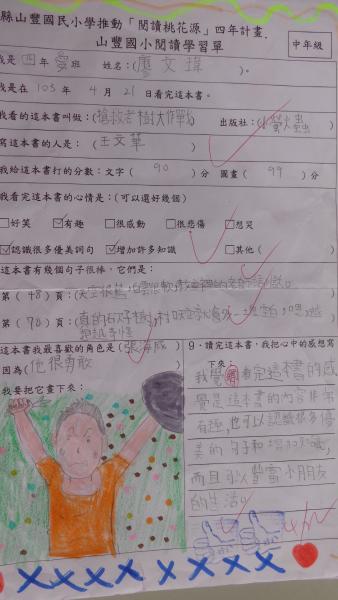 縣山豐國民小學推動「閱讀桃花源」四年計畫
山豐國小閱讀學習單
中年級
我是 四年 愛班 姓名:(廖文瑋)。
我是在 103年 4月 21日看完這本書。
我看的這本書叫做:(搶救老樹大作戰) 出版社:(小螢火蟲)
寫這本書的人是:(王文華)
我給這本書打的分數:文字(90)分 圖畫(99)分
我看完這本書的心情是:(可以選好幾個)
□好笑 ☑有趣 □很感動 □很悲傷 □想哭
☑認識很多優美詞句 ☑增加許多知識 □其他( )
這本書有幾個句子很棒,它們是:
第(48)頁:(天空很藍,白雲很軟
第(78)頁:(真的
這本書我最喜歡的角色是(張海威)
因為(他很勇敢
我要把它畫下來:
9、讀完這本書,我把心中的感想寫
下來:
我覺得看完這本書的感
覺是這本書的內容非常
有趣,也可以認識很多優
美的句子和增加知識,
而且可以豐富小朋友
的生活。